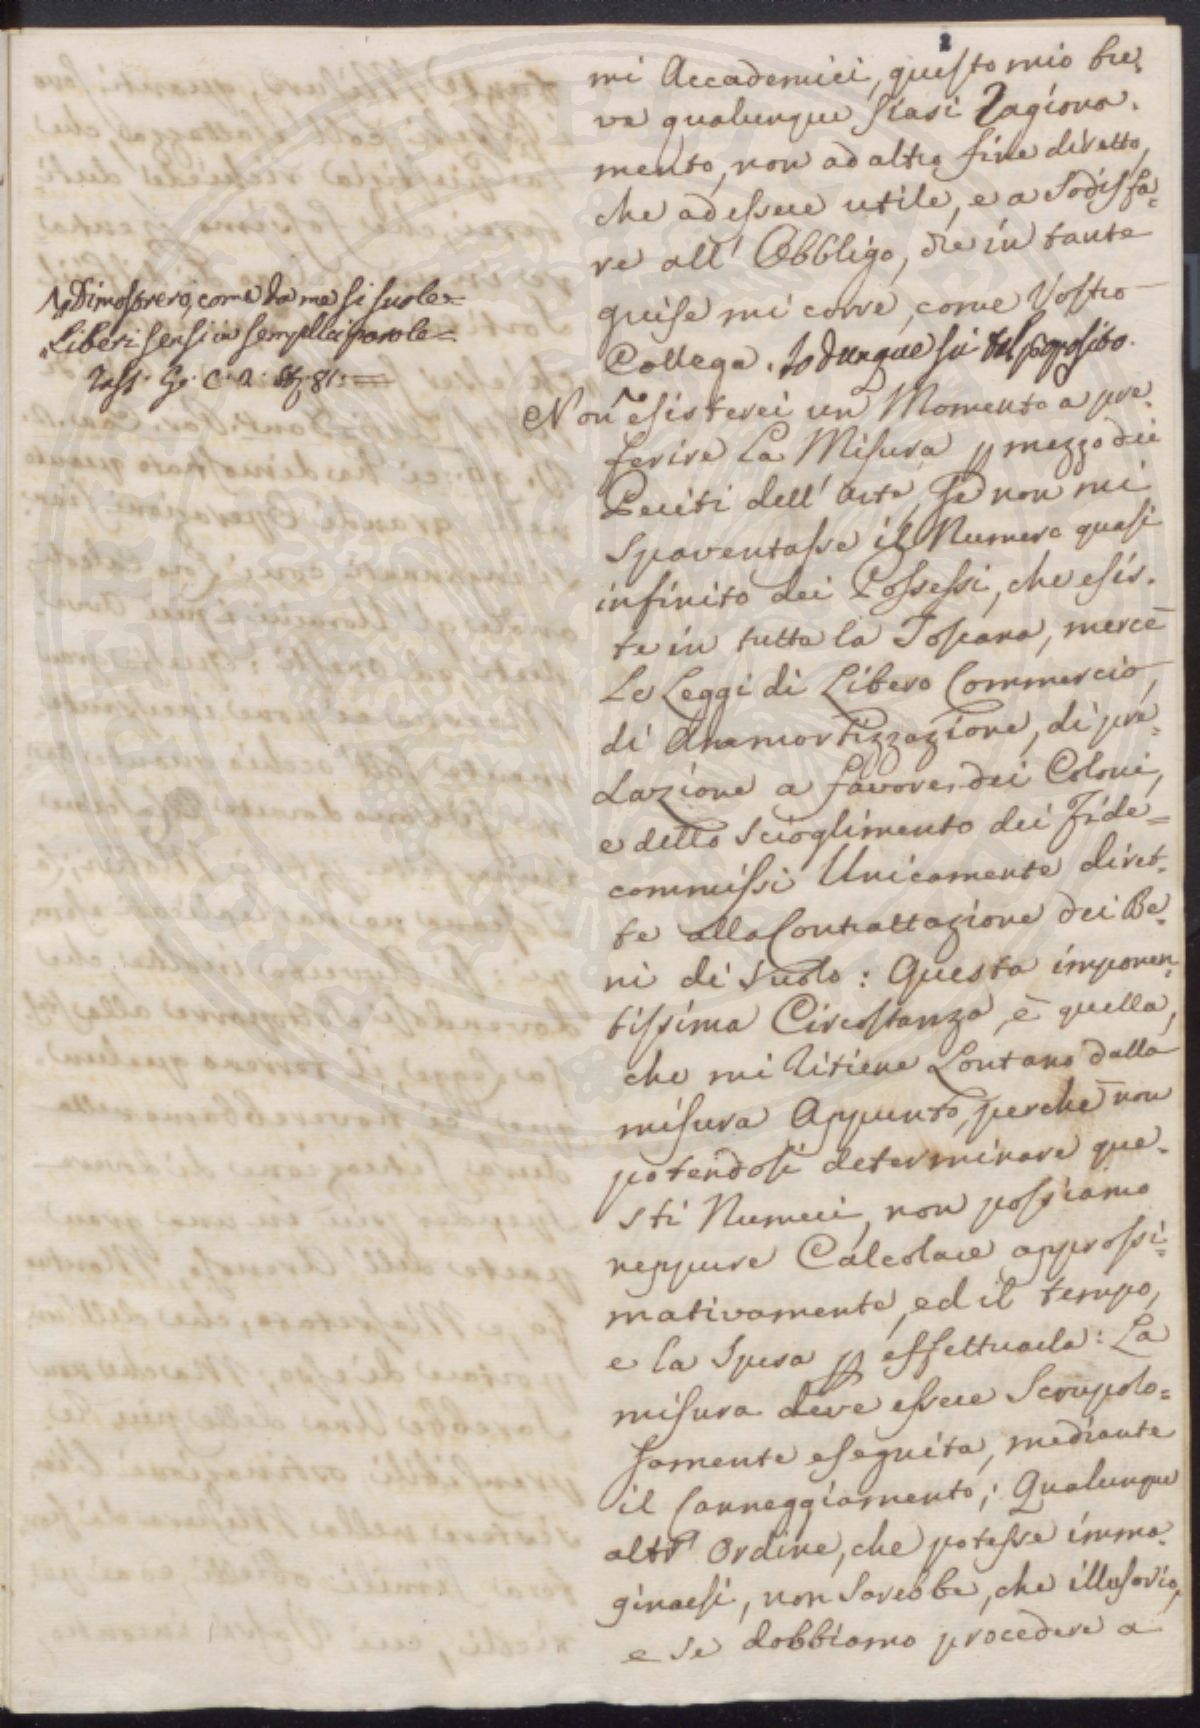 2
mi Accademici, questo mio bre-
ve qualunque siasi Ragiona-
mento, non ad altro fine diretto,
che ad essere utile, e a Sodisfa-
re all' Obbligo, che in tante
guise mi corre, come Vostro
Collega. Io dunque su tal proposito
„ Dimostrerò, come da me si suole =
„ Liberi sensi in semplici parole =
Tass. Ge. C. 2. St. 81. =
Non esisterei un Momento a pre-
ferire La Misura p mezzo dei
Periti dell' Arte, Se non mi
Spaventasse il Numero quasi
infinito dei Possessi, che esis-
te in tutta la Toscana, mercè
Le Leggi di Libero Commercio,
di Ammortizzazione, di pre-
lazione a favore dei Coloni,
e dello scioglimento dei Fide=
commissi Unicamente diret-
te alla Contrattazione dei Be-
ni di Suolo: Questa imponen-
tissima Circostanza, è quella,
che mi ritiene Lontano dalla
misura Appunto, perchè non
potendosi determinare que-
sti Numeri, non possiamo
neppure Calcolare approssi-
mativamente, ed il tempo,
e la Spesa p effettuarla: La
misura deve essere Scrupolo=
samente eseguita, mediante
il Canneggiamento; Qualunque
altr' Ordine, che potesse imma-
ginarsi, non Sarebbe, che illusorio,
e se dobbiamo procedere a